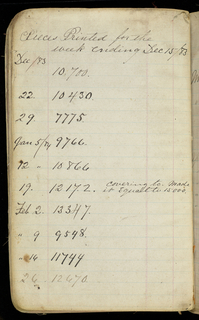 Pieces Printed for the
week ending Dec 15/83
Dec/83
10,700.
22 10430.
29 7775
Jan 5/84 9766.
12 " 10866
19. 12172. covering &c. Made
it Equal to 12000.
Feb 2. 13347.
" 9 9548.
" 16 11744
26 12670